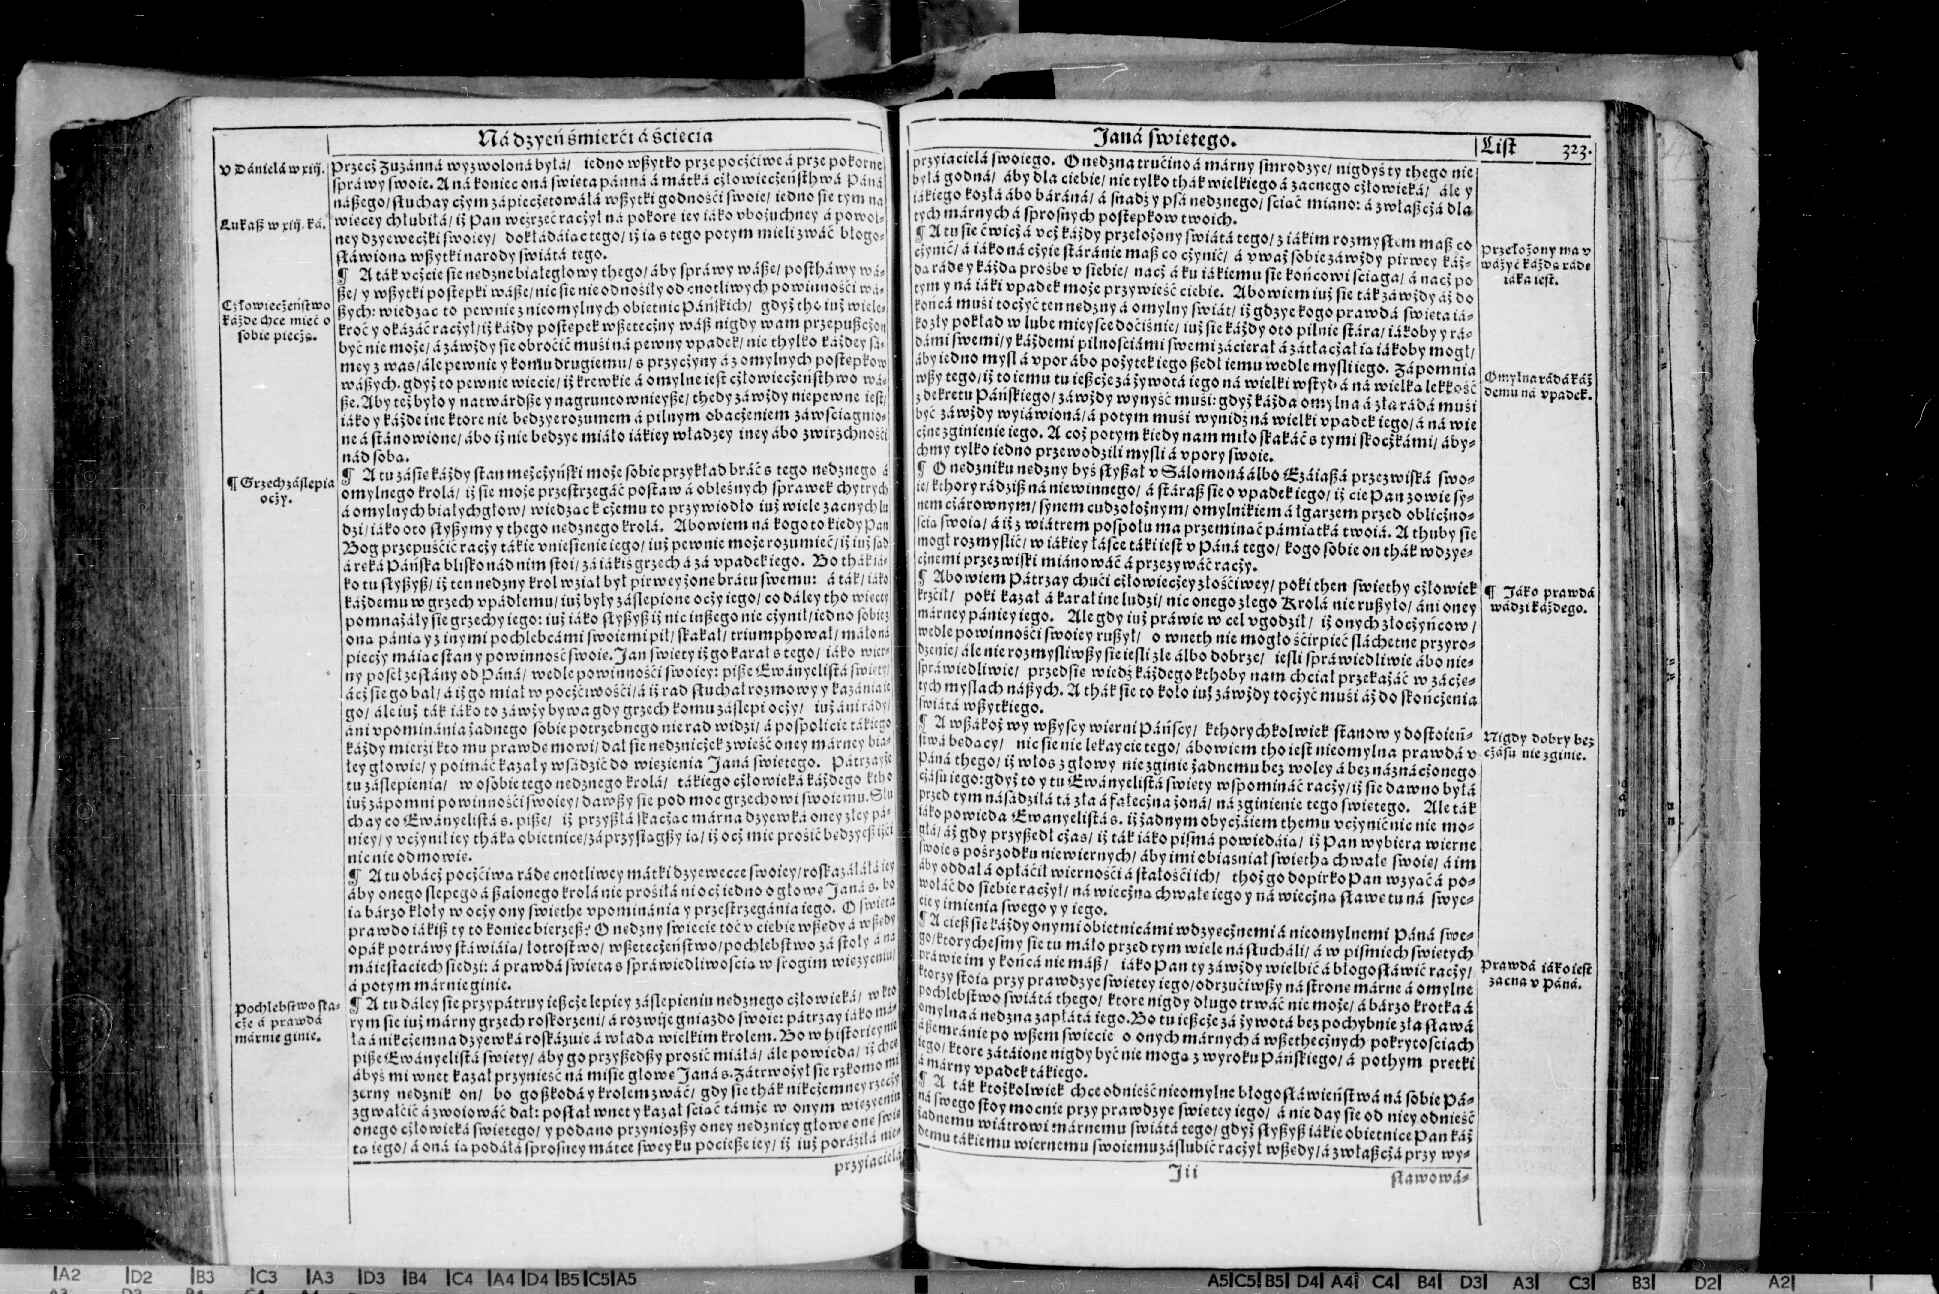 Ná dzyeń śmierći á śćiecia
v Dánielá w xiij.
Lukaß w xiij. ká.
Człowieczeństwo
káżde chce mieć o
sobie pieczą.
¶ Grzech záślepia
oczy.
Pochlebstwo stá-
cże á prawdá
márnie ginie.
Przecż Zuzánná wyzwoloná byłá/ iedno wßytko prze pocżćiwe á prze pokorne
spráwy swoie. A ná koniec oná świeta pánná á mátká cżłowiecżeństhwá Páná
nászego/ słuchay cżym zápiecżetowáłá wßytki godnośći swoie/ iedno sie tym na
wiecey chlubiłá/ iż Pan weźrzeć racżył ná pokore iey iáko vbożuchney á powol-
ney dzyewecżki swoiey/ dokłádáiac tego/ iż ia s tego potym mieli zwáć błogo-
sławiona wßytki narody świátá tego.
¶ A ták vcżćie sie nedzne białegłowy thego/ áby spráwy wáße/ posthawy wá-
ße/ y wßytki postepki wáße/ nic sie nie odnośiły od cnotliwych powinnośći wá-
ßych: wiedzac to pewnie z nieomylnych obietnic Páńskich/ gdyż the iuż wiele-
kroć y okázáć racżył/ iż káżdy postepek wßetecżny wáß nigdy wam przepußcżon
być nie może/ á záwżdy sie obroćić muśi ná pewny vpadek/ nie thylko káżdey sá-
mey z was/ ále pewnie y komu drugiemu/ s przycżyny á z omylnych postepkow
wáßych. gdyż to pewnie wiecie/ iż krewkie á omylne iest cżłowiecżeństhwo wá-
ße. Aby też było y natwárdße y nagruntownieyße/ thedy záwżdy niepewne iest/
iáko y káżde ine ktore nie bedzye rozumem á pilnym obacżeniem záwśćiágnio-
ne á stánowione/ ábo iż nie bedzye miáło iákiey władzey iney ábo zwirzchnośći
nád soba.
¶ A tu záśie káżdy stan meżcżyński może sobie przykład bráć s tego nedznego á
omylnego krolá/ iż sie może przestrzegáć postaw á obleśnych spraweк chytrych
á omylnych białychgłow/ wiedzac k cżemu to przywiodło iuż wiele zacnych lu
dzi/ iáko oto słyßymy y thego nedznego krolá. Abowiem ná kogo to kiedy Pan
Bog przepuśćić racży tákie vnieśienie iego/ iuż pewnie może rozumieć/ iż iuż sad
á reká Páńska blisko nád nim stoi/ zá iákiś grzech á zá vpadek iego. Bo thák iá-
ko tu słyßyß/ iż ten nedzny krol wział był pirwey żone brátu swemu: á ták/ iáko
káżdemu w grzech vpádłemu/ iuż były záślepione ocży iego/ co dáley tho wiecey
pomnażáły sie grzechy iego: iuż iáko słyßyß iż nic inßego nie cżynił/ iedno sobie z
ona pánia y z inymi pochlebcámi swoiemi pił/ skakał/ triumphował/ máło ná
piecży máiac stan y powinność swoie. Jan świety iż go karał s tego/ iáko wier-
ny poseł zesłány od Páná/ wedle powinnośći swoiey: piße Ewányelistá świety/
ácż sie go bał/ á iż go miał w pocżćiwośći/ á iż rad słuchał rozmowy y kazánia ie
go/ ále iuż ták iáko to záwży bywa gdy grzech komu záślepi ocży/ iuż áni rády/
áni vpominánia żadnego sobie potrzebnego nierad widzi/ á pospolicie tákiego
káżdy mierźi kto mu prawde mowi/ dał sie nedznicżek zwieść oney márney bia-
łey głowie/ y poimáć kazał y wsádźić do wiezienia Janá świetego. Pátrzayże
tu záślepienia/ w osobie tego nedznego krolá/ tákiego cżłowieká káżdego ktho
iuż zápomni powinnośći swoiey/ dawßy sie pod moc grzechowi swoiemu. Słu
chay co Ewányelistá s. piße/ iż przyßłá skacżac márna dzyewká oney złey pá-
niey/ y vcżynił iey tháka obietnice/ záprzyśiągßy ia/ iż ocż mie prośić bedzyeß iżći
nic nie odmowie.
¶ A tu obacż pocżćiwa ráde cnotliwey mátki dzyewecce swoiey/ roskazáłáłá iey
áby onego ślepego á ßalonego krolá nie prośiłá ni ocż iedno o głowe Janá s. bo
ia bárzo kłoły w ocży ony świethe vpominánia y przestrzegánia iego. O świeta
prawdo iákiß ty to koniec bierzeß? O nedzny świecie toć v ciebie wßedy á wßedy
opák potráwy stáwiáia/ łotrostwo/ wßetecżeństwo/ pochlebstwo zá stoły á ná
máiestaciech śiedzi: á prawdá świeta s spráwiedliwośćia w srogim wiezyeniu/
á potym márnie ginie.
¶ A tu dáley sie przypátruy ießcże lepiey záślepieniu nedznego cżłowieká/ w kto
rym sie iuż márny grzech roskorzeni/ á rozwije gniazdo swoie: pátrzay iáko má-
łá á nikcżemna dzyewká roskázuie á włada wielkim krolem. Bo w historiey nie
piße Ewányelistá świety/ áby go przyßedßy prośić miáłá/ ále powieda/ iż chce
ábyś mi wnet kazał przynieść ná miśie głowe Janá s. Zátrwożył sie rzkomo mi
zerny nednik on/ bo goßkodá y krolem zwáć/ gdy sie thák nikcżemney rzecży
zgwałćić á zwoiowáć dał: posłał wnet y kazał śćiáć támże w onym wiezyeniu
onego cżłowieká świetego/ y podano przyniozßy oney nedznicy głowe one świe
ta iego/ á oná ia podáłá sprosney mátce swey ku pocieße iey/ iż iuż poráźiłá nie-
przyiacielá
Janá swietego.
List 323.
przyiacielá swoiego. O nedzna trućino á márny smrodzye/ nigdyś ty thego nie
byłá godná/ áby dla ciebie/ nie tylko thák wielkiego á zacnego cżłowieká/ ále y
iákiego kozłá ábo báráná/ á snadź y psá nedznego/ śćiáć miano: á zwłaßcżá dla
tych márnych á sprosnych postepkow twoich.
¶ A tu sie ćwicż á vcż káżdy przełożony świátá tego/ z iákim rozmysłem maß co
cżynić/ á iáko ná cżyie stáránie maß co cżynić/ á vważ sobie záwżdy pirwey káż-
da ráde y káżda prośbe v siebie/ nacż á ku iákiemu sie końcowi śćiaga/ á nacż po
tym y ná iáki vpadek może przywieść ciebie. Abowiem iuż sie ták záwżdy áż do
końcá muśi tocżyć ten nedzny á omylny świát/ iż gdzye kogo prawdá świeta iá-
kozły pokład w lube mieysce doćiśnie/ iuż sie káżdy oto pilnie stára/ iákoby y rá-
dámi swemi/ y káżdemi pilnośćiámi swemi záćierał á zátłacżał ia iákoby mogł/
áby iedno mysl á vpor ábo pożytek iego ßedł iemu wedle mysli iego. Zápomnia
wßy tego/ iż to iemu tu ießcże zá żywotá iego ná wielki wstyd á ná wielka lekkość
z dekretu Páńskiego/ záwżdy wynyść muśi: gdyż káżda omylna á zła rádá muśi
być záwżdy wyiáwioná/ á potym muśi wynidź ná wielki vpadek iego/ á ná wie
cżne zginienie iego. A coż potym kiedy nam miło skakáć s tymi skocżkámi/ áby-
chmy tylko iedno przewodzili mysli á vpory swoie.
¶ O nedzniku nedzny byś słyßał v Sálomoná álbo Ezáiaßá przezwiská swo-
ie/ kthory rádziß ná niewinnego/ á stáraß sie o vpadek iego/ iż cie Pan zowie sy-
nem cżárownym/ synem cudzołożnym/ omylnikiem á łgarzem przed oblicżno-
śćia swoia/ á iż z wiátrem pospołu ma przeminać pámiatká twoiá. A thuby sie
mogł rozmyślić/ w iákiey łásce táki iest v Páná tego/ kogo sobie on thák wdzye-
cżnemi przezwiski miánowáć á przezywáć racży.
¶ Abowiem Pátrzay chući cżłowiecżey złośćiwey/ poki then świethy cżłowiek
krzćił/ poki kazał á karał ine ludzi/ nic onego złego Krolá nie rußyło/ áni oney
márney pániey iego. Ale gdy iuż práwie w cel vgodźił/ iż onych złocżyńcow/
wedle powinnośći swoiey rußył/ o wneth nie mogło śćirpieć ślachetne przyro-
dzenie/ ále nie rozmyśliwßy sie iesli źle álbo dobrze/ iesli spráwiedliwie ábo nie-
spráwiedliwie/ przedsie wiedź káżdego kthoby nam chciał przekażáć w zácże-
tych myślach náßych. A thák sie to koło iuż záwżdy tocżyć muśi áż do skońcżenia
świátá wßytkiego.
¶ A wßákoż wy wßyscy wierni Páńscy/ kthorychkolwiek stanow y dostoień-
stwá bedacy/ nic sie nie lekaycie tego/ ábowiem tho iest nieomylna prawdá v
Páná thego/ iż włos z głowy nie zginie żadnemu bez woley á bez náznácżonego
cżásu iego: gdyż to y tu Ewányelistá świety wspomináć racży/ iż sie dawno byłá
przed tym násádźiłá tá zła á fałecżna żoná/ ná zginienie tego świetego. Ale ták
iáko powieda Ewányelistá s. iż żadnym obycżáiem themu vcżynić nic nie mo-
głá/ áż gdy przyßedł cżas/ iż ták iáko pismá powiedáia/ iż Pan wybiera wierne
swoie s pośrzodku niewiernych/ áby imi obiáśniał świetha chwałe swoie/ á im
áby oddał á opłáćił wiernośći á stałośći ich/ thoż go dopirko Pan wzyáć á po-
wołáć do siebie racżył/ ná wiecżna chwałe iego y ná wiecżna sławe tu ná swye-
ćie y imienia swego y y iego.
¶ A cieß sie káżdy onymi obietnicámi wdzyecżnemi á nieomylnemi Páná swe-
go/ ktorychesmy sie tu máło przed tym wiele násłucháli/ á w piśmiech świetych
práwie im y końcá nie máß/ iáko Pan ty záwżdy wielbić á błogosłáwić racży/
ktorzy stoia przy prawdzye świetey iego/ odrzućiwßy ná strone márne á omylne
pochlebstwo świátá thego/ ktore nigdy długo trwáć nie może/ á bárzo krotka á
omylna á nedzna zapłátá iego. Bo tu ießcże zá żywotá bez pochybnie zła sławá
á ßemránie po wßem świecie o onych márnych á wßethecżnych pokrytośćiach
iego/ ktore zátáione nigdy być nie moga z wyroku Páńskiego/ á pothym pretki
á márny vpadek tákiego.
¶ A ták ktożkolwiek chce odnieść nieomylne błogosłáwieństwá ná sobie Pá-
ná swego stoy mocnie przy prawdzye świetey iego/ á nie day sie od niey odnieść
żadnemu wiátrowi márnemu świátá tego/ gdyż słyßyß iákie obietnice Pan káż
demu tákiemu wiernemu swoiemu záślubić racżył wßedy/ á zwłaßcżá przy wy-
Jii
sławowá-
Przełożony ma v
ważyć káżda ráde
iáka iest.
Omylna rádá káż
demu ná vpadek.
¶ Jáko prawdá
wádzi káżdego.
Nigdy dobry bez
cżásu nie zginie.
Prawdá iáko iest
zacna v Páná.
A2 D2 B3 C3 A3 D3 B4 C4 A4 D4 B5 C5 A5
A5 C5 B5 D4 A4 C4 B4 D3 A3 C3 B3 D2 A2